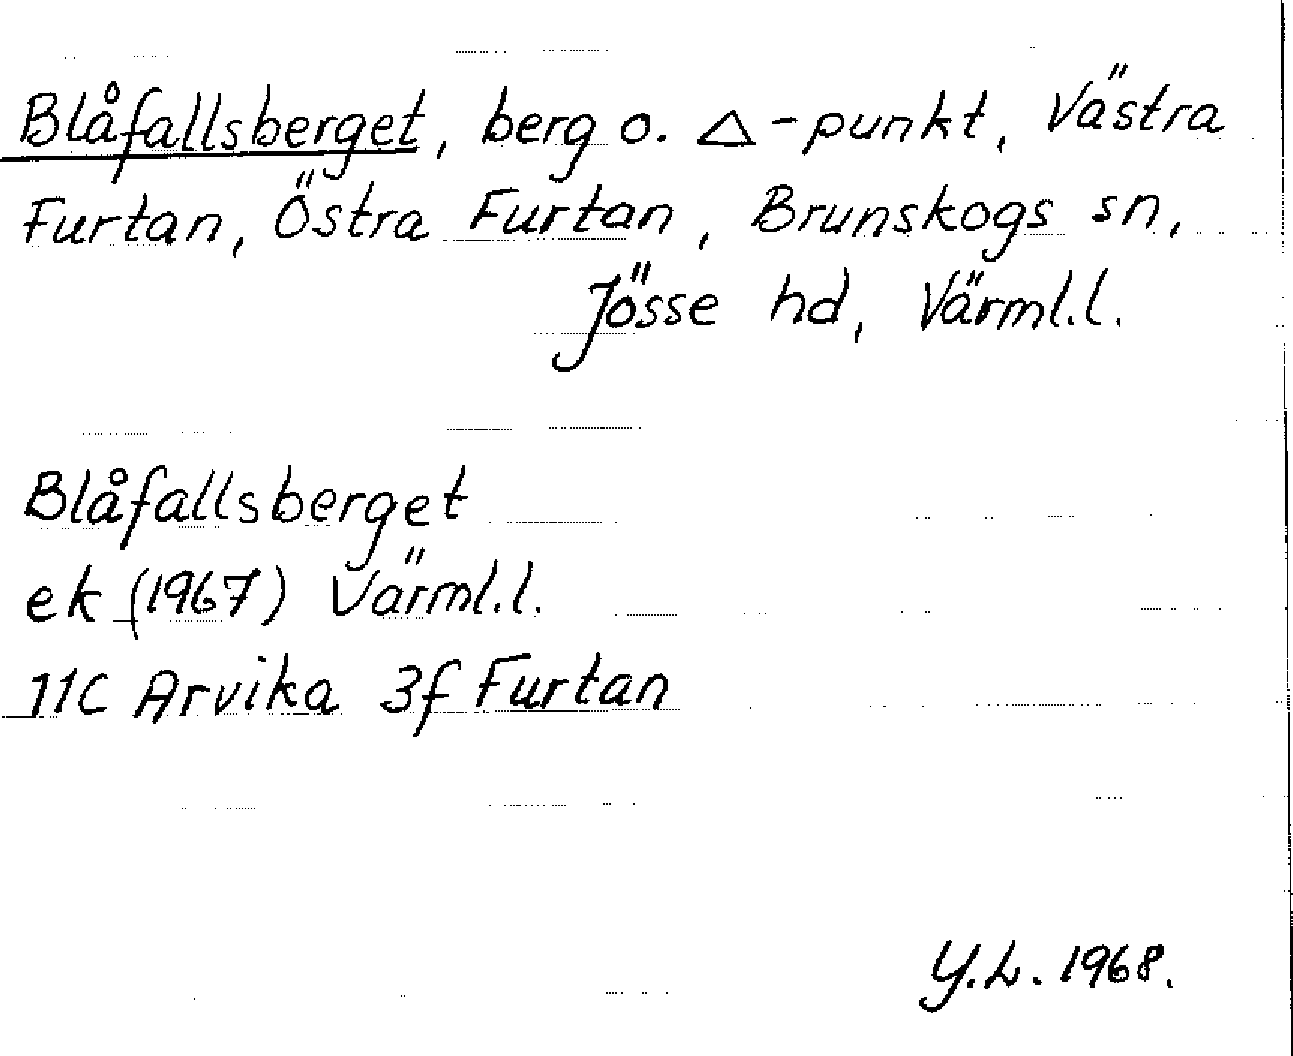 Blåfallsberget, berg o. △-punkt, Västra
Furtan, Östra Furtan, Brunskogs sn,
Jösse hd, Värml.l.
Blåfallsberget
ek (1967) Värml.l.
11C Arvika 3f Furtan
Y.L. 1968.